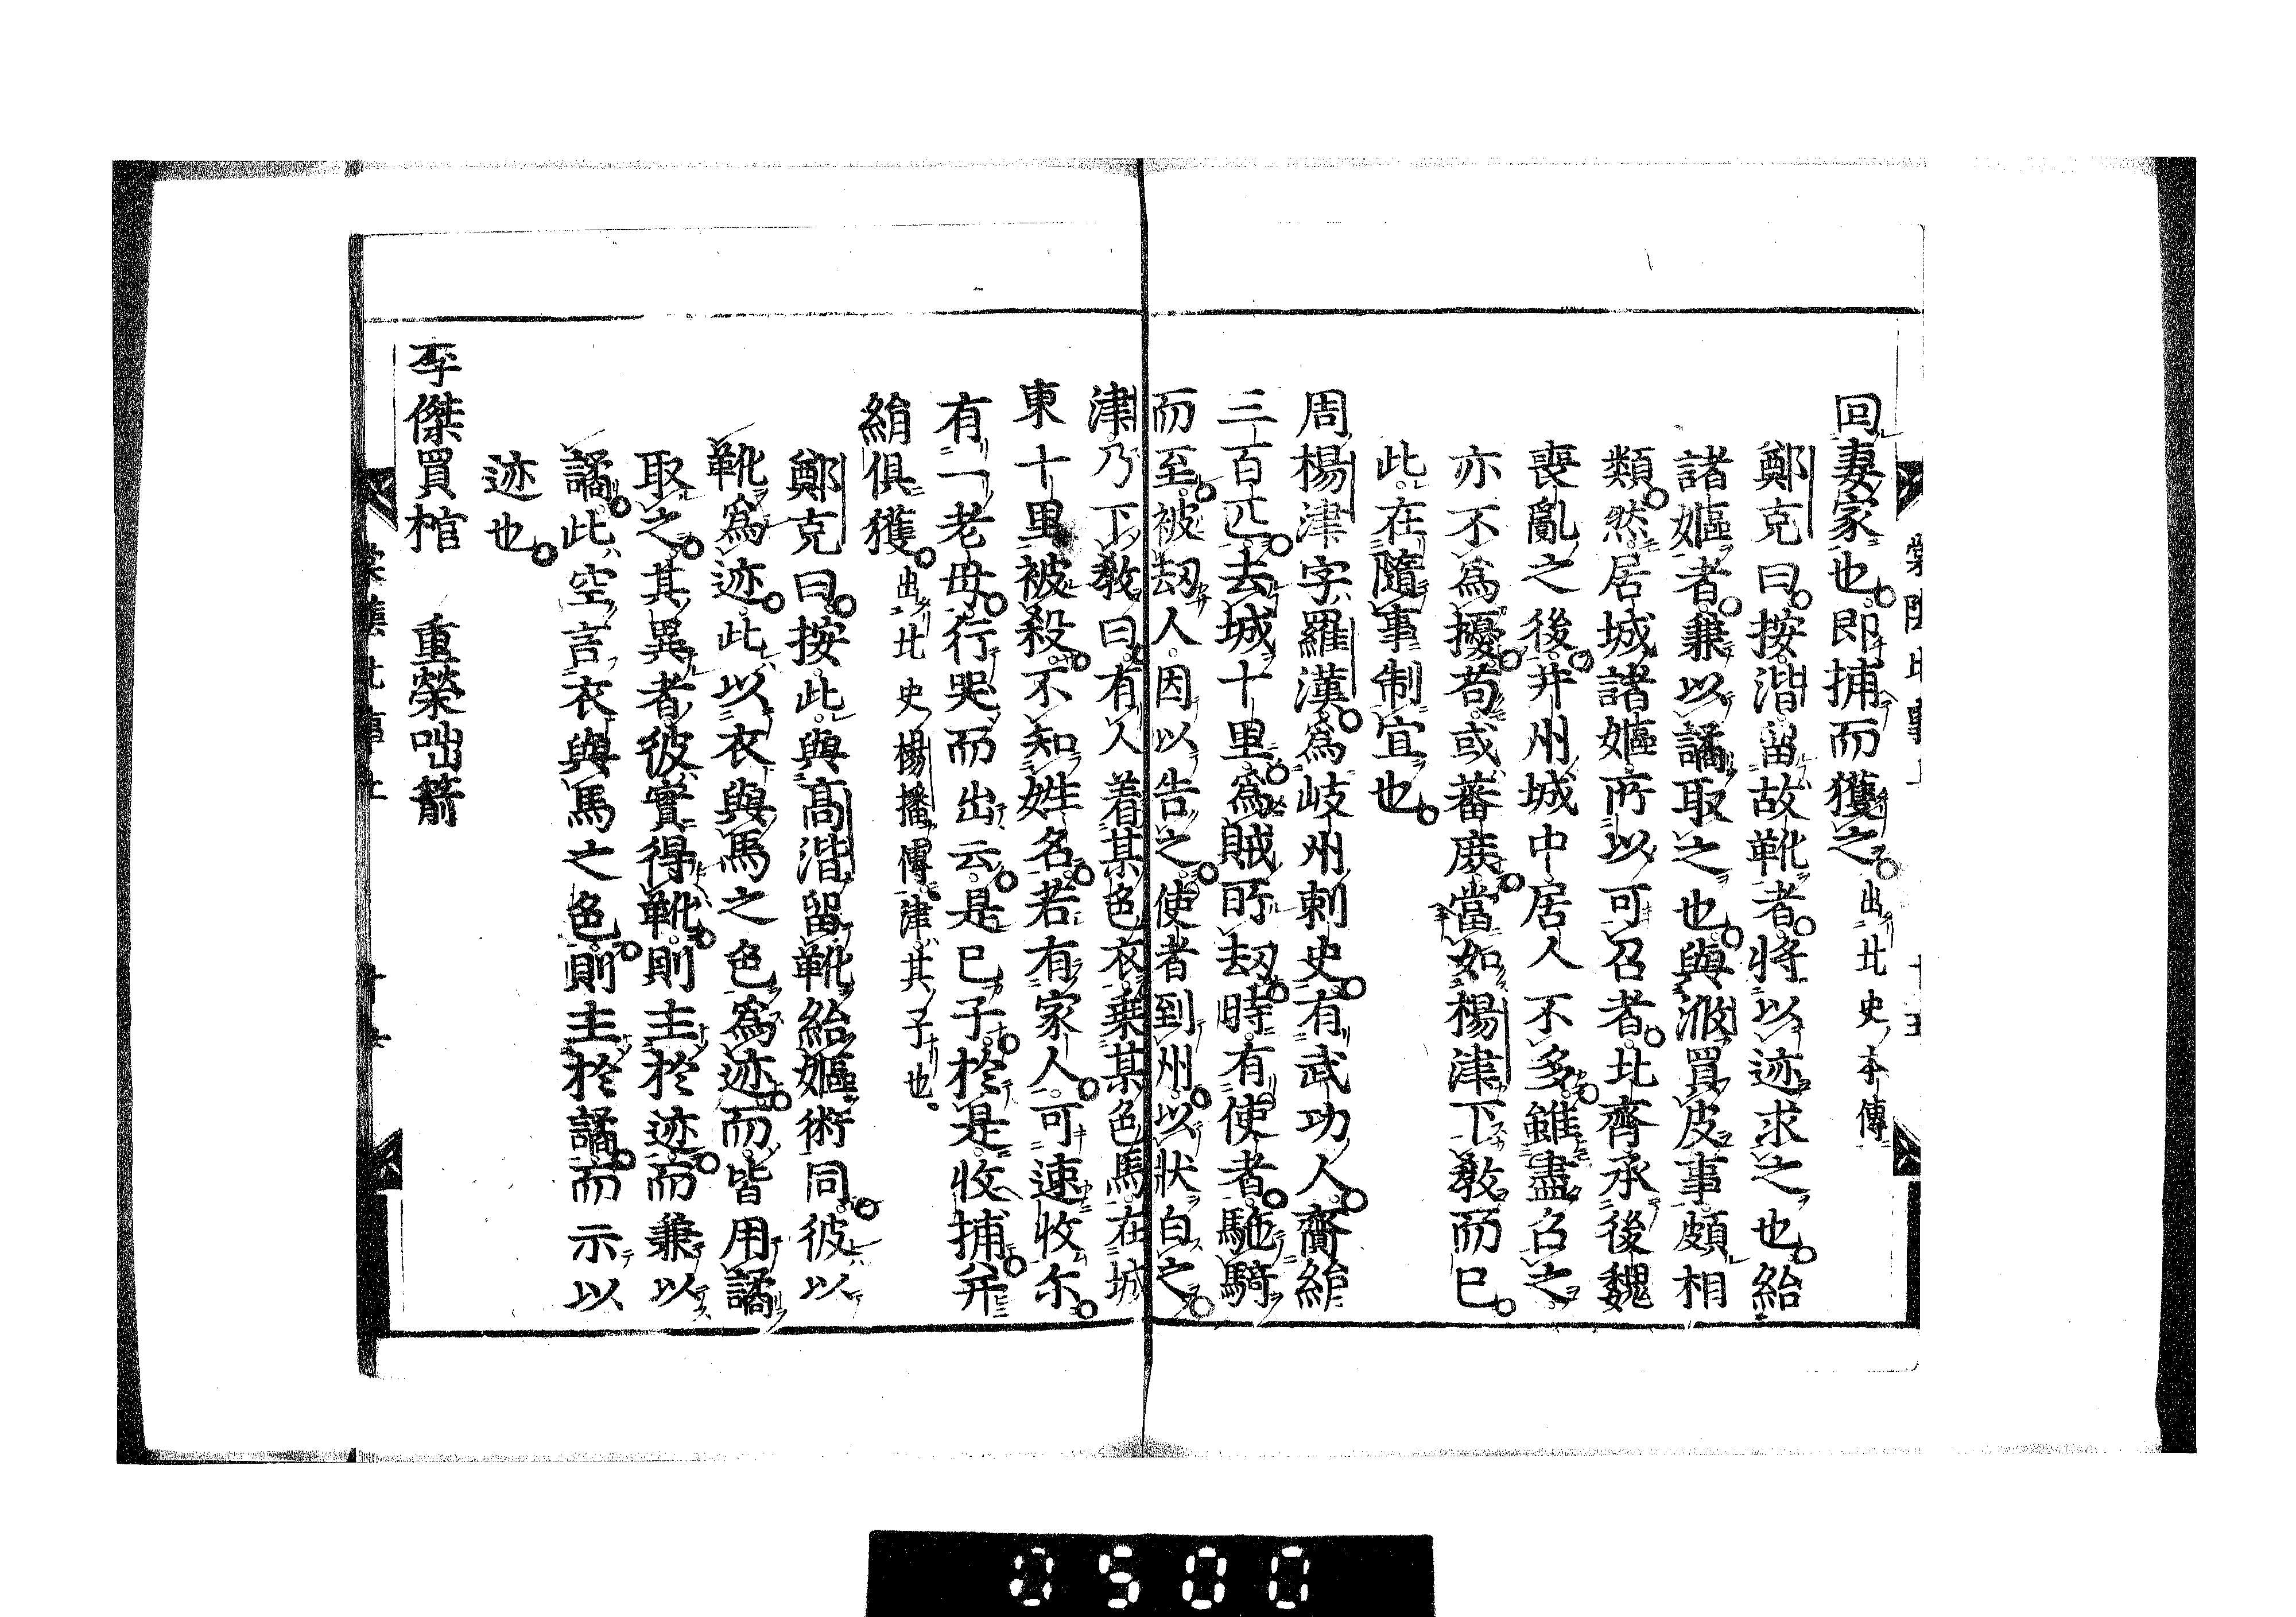 回妻家也即捕而獲之出北史本傳
鄭克曰按湝留故靴者將以迹求之也紿
諸嫗者兼以譎取之也與浟買皮事頗相
類然居城諸嫗所以可召者北齊承後魏
喪亂之後井州城中居人不多雖盡召之
亦不為擾苟或蕃庶當如楊津下教而已
此在隨事制宜也
周楊津字羅漢為岐州刺史有武功人齎絹
三百匹去城十里為賊所劫時有使者馳騎
而至被劫人因以告之使者到州以狀白之
津乃下教曰有人着某色衣乗某色馬在城
東十里被殺不知姓名若有家人可速收尓
有一老母行哭而出云是已子於是收捕并
絹俱獲出北史楊播傳津其子也
鄭克曰按此與高湝留靴紿嫗術同彼以
靴為迹此以衣與馬之色為迹而皆用譎
取之其異者彼實得靴則主於迹而兼以
譎此空言衣與馬之色則主於譎而示以
迹也
李傑買棺 重榮咄箭
0500